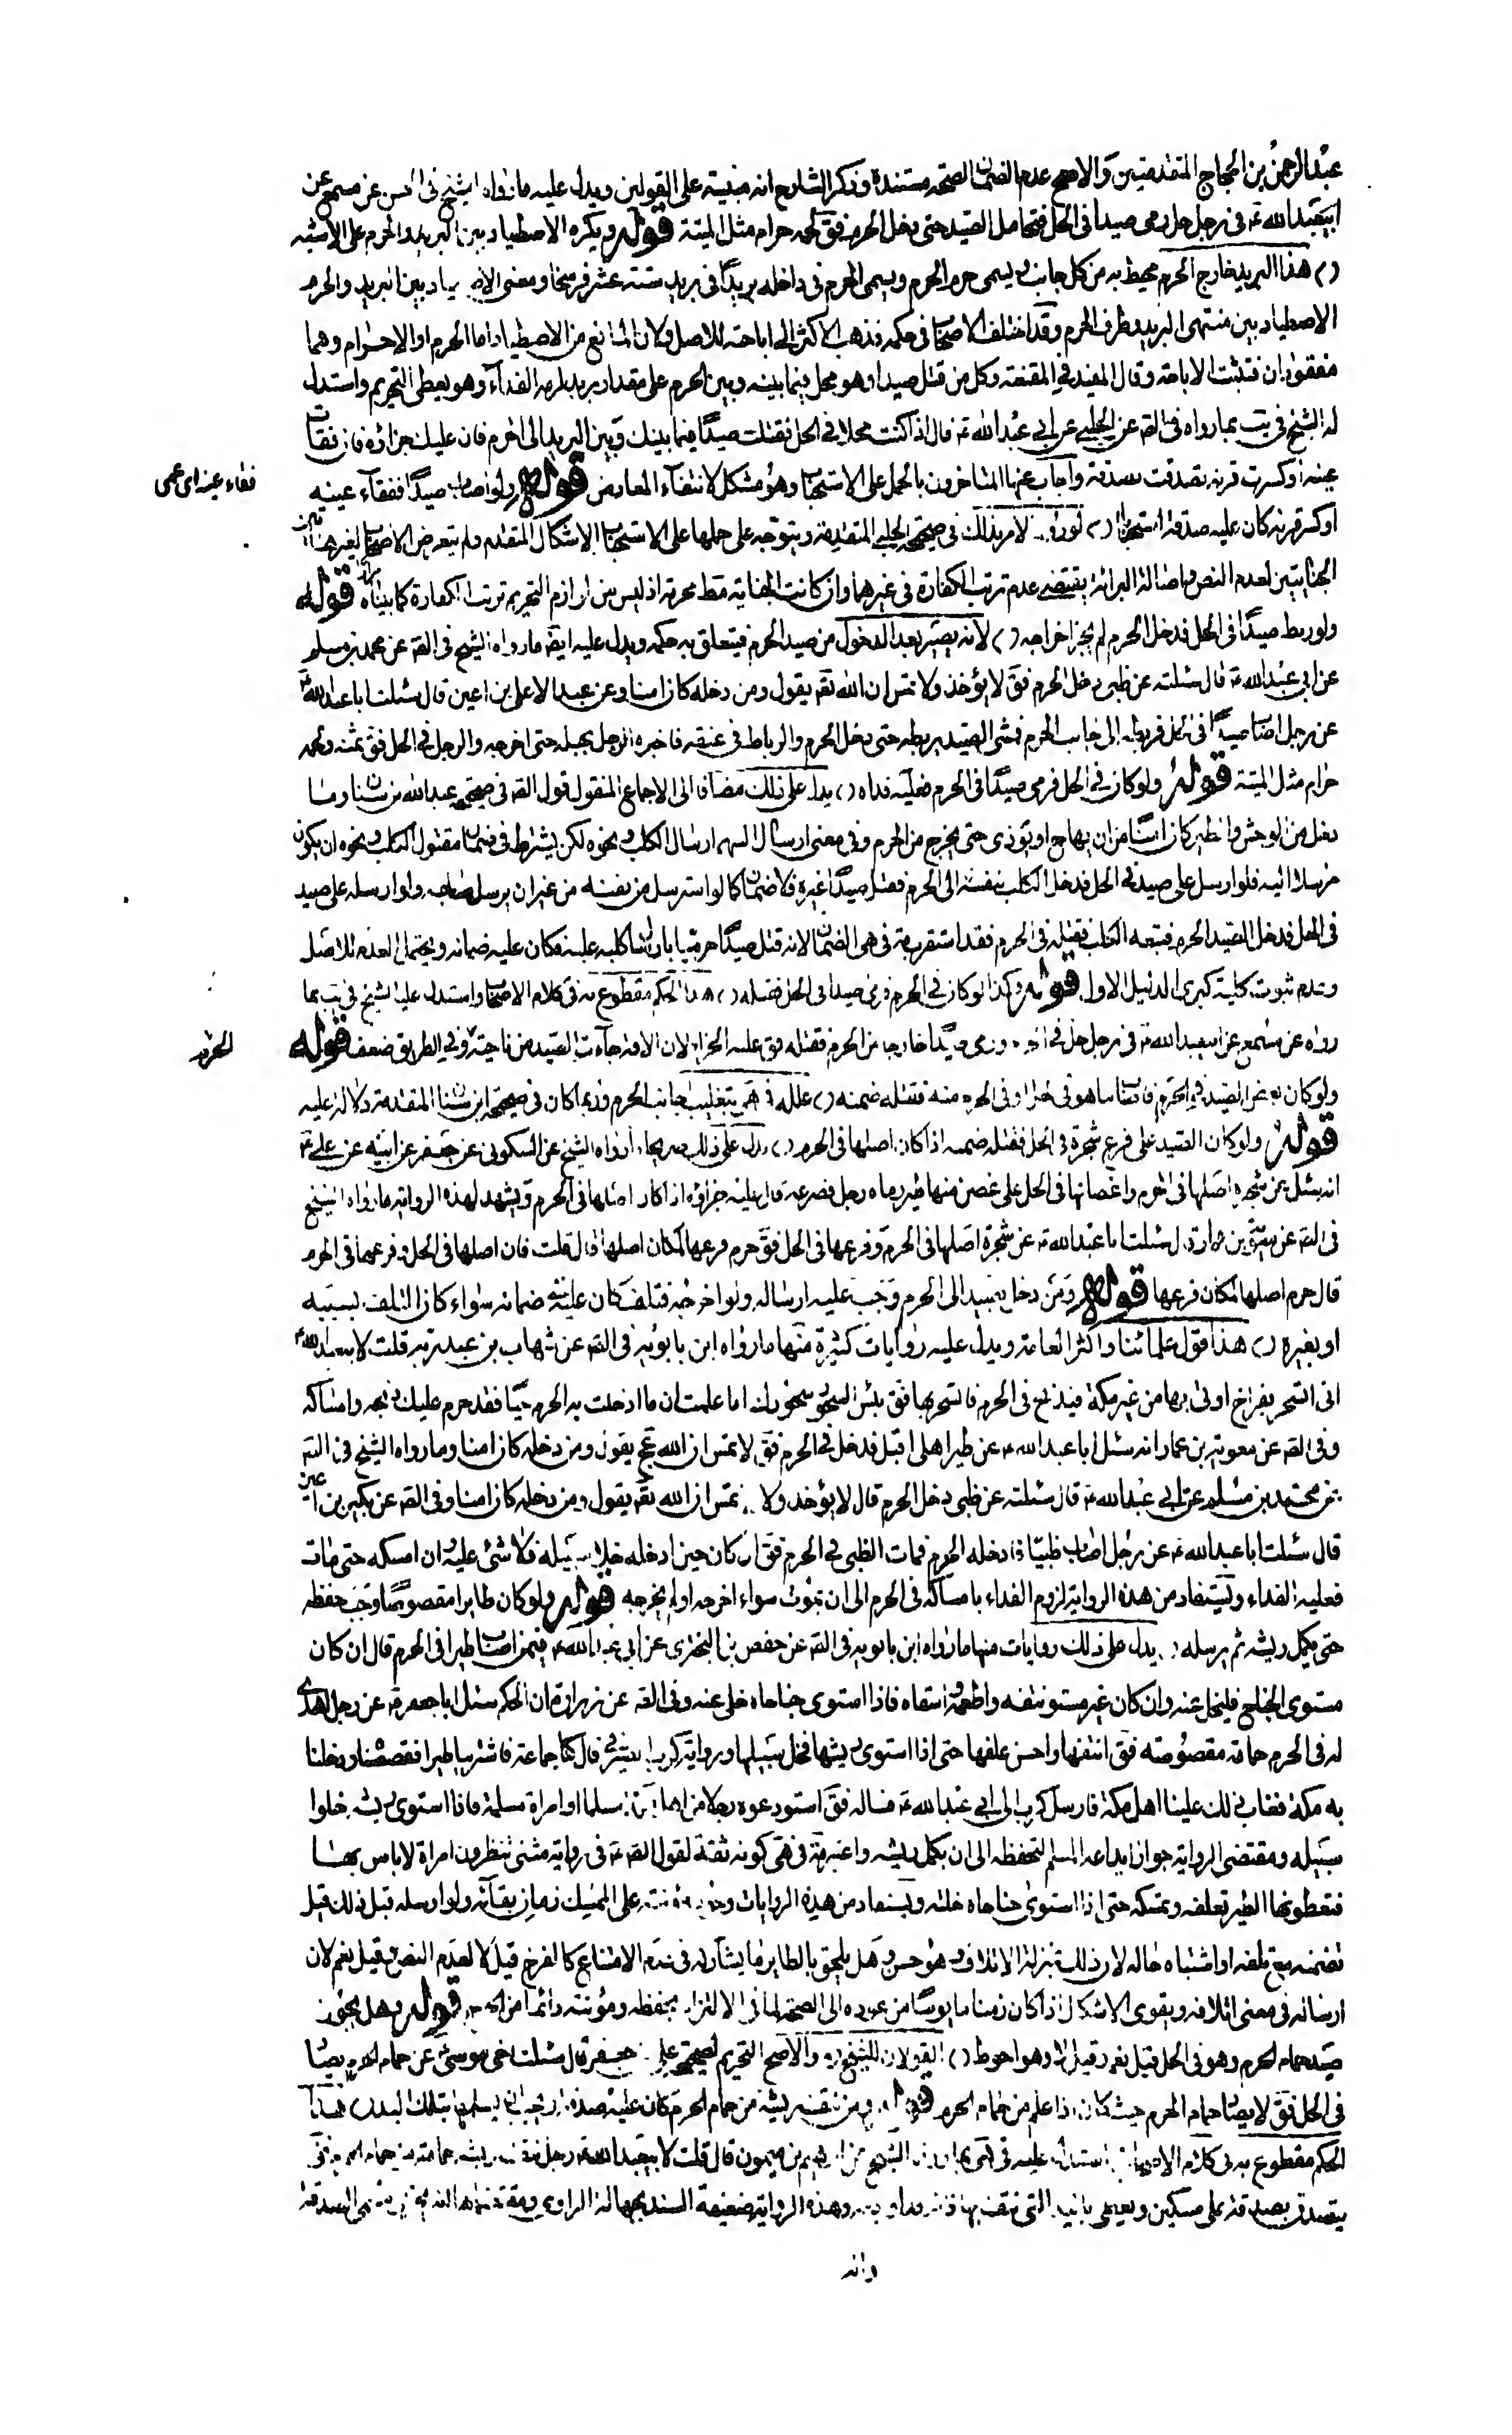 عبد الرحمن بن الحجاج المتقدمتين والاصح عدم الضمان لصحة مستنده وذكر الشارح انه مبنية على القولين ويدل عليه ما رواه الشيخ في الحسن عن مسمع عن
ابيعبد الله ع في رجل حل رمى صيدا في الحل فتحامل الصيد حتى دخل الحرم فق لحمه حرام مثل الميتة قوله ويكره الاصطياد بين البريد والحرم على الاشبه
هذا البريد خارج الحرم محيط به من كل جانب ويسمى حرم الحرم ويسمى الحرم في داخله بريدا في بريد ستة عشر فرسخا ومعنى الاصطياد بين البريد والحرم
الاصطياد بين منتهى البريد وطرف الحرم وقد اختلف الاصحاب في حكمه فذهب الاكثر الى اباحته للاصل ولان المانع من الاصطياد اما الحرم او الاحرام وهما
مفقودان فتثبت الاباحة وقال المفيد في المقنعة وكل من قتل صيدا وهو محل فيما بينه وبين الحرم على مقدار بريد لزمه الفدآء وهو يعطى التحريم واستدل
له الشيخ في يب بما رواه في الصه عن الحلبي عن ابي عبد الله ع قال اذا كنت محلا في الحل فقتلت صيدا فيما بينك وبين البريد الى الحرم فان عليك جزاؤه فان فقات
عينه او كسرت قرنه تصدقت بصدقة واجاب عنها المتاخرون بالحمل على الاستحباب وهو مشكل لانتفاء المعارض قوله ولو اصاب صيدا ففقاء عينيه
فقاء عينه اى عمى
او كسر قرنه كان عليه صدقة استحبابا لورود الامر بذلك في صحيحة الحلبي المتقدمة ويتوجه على حملها على الاستحباب الاشكال المتقدم ولم يتعرض الاصحاب لغير هاتين
الجنايتين لعدم النص واصالة البرائة يقتضى عدم ترتب الكفارة في غيرهما وان كانت الجناية قط محرمة اذ ليس من لوازم التحريم ترتب الكفارة كما بيناه مرارا قوله
ولو ربط صيدا في الحل فدخل الحرم لم يجز اخراجه لانه يصير بعد الدخول من صيد الحرم فيتعلق به حكمه ويدل عليه ايضا ما رواه الشيخ في الصه عن محمد بن مسلم
عن ابي عبد الله ع قال سئلته عن ظبى دخل الحرم فق لا يؤخذ ولا يمس ان الله تع يقول ومن دخله كان امنا وعن عبد الاعلى بن اعين قال سئلت ابا عبد الله ع
عن رجل اصاب صيدا في الحل فربطه الى جانب الحرم فمشى الصيد بربطه حتى دخل الحرم والرباط في عنقه فاجره الرجل بحبله حتى اخرجه والرجل في الحل فق ثمنه ولحمه
حرام مثل الميتة قوله ولو كان في الحل فرمى صيدا في الحرم فعليه فداه يدل على ذلك مضافا الى الاجماع المنقول قول الصه في صحيحة عبد الله بن سنان وما
دخل من الوحش والطير كان امنا من ان يهاج او يؤذى حتى يخرج من الحرم وفي معنى ارسال السهم ارسال الكلب ونحوه لكن يشترط في ضمان مقتول الكلب ونحوه ان يكون
مرسلا اليه فلو ارسل على صيد في الحل فدخل الكلب بنفسه الى الحرم فقتل صيدا غيره فلا ضمان كما لو استرسل من نفسه من غير ان يرسل صاحبه ولو ارسله على صيد
في الحل فدخل الصيد الحرم فتبعه الكلب فقتله في الحرم فقد استقرب مة في هى الضمان لانه قتل صيدا حرميا بارسال كلبه عليه فكان عليه ضمانه ويحتمل العدم للاصل
وعدم ثبوت كلية كبرى الدليل الاول قوله وكذا لو كان في الحرم فرمى صيدا في الحل فقتله هذا الحكم مقطوع به في كلام الاصحاب واستدل عليه الشيخ في يب بما
رواه عن مسمع عن ابيعبد الله ع في رجل حل في الحرم ورمى صيدا خارجا من الحرم فقتله فق عليه الجزاء لان الافة جاءت الصيد من ناحيته وفي الطريق ضعف قوله
الحرم
ولو كان بعض الصيد في الحرم فاصاب ما هو في الحل او في الحرم منه فقتله ضمنه علله في هى بتغليب جانب الحرم وربما كان في صحيحة ابن سنان المتقدمة دلالة عليه
قوله ولو كان الصيد على فرع شجرة في الحل فقتله ضمنه اذا كان اصلها في الحرم يدل على ذلك صريحا ما رواه الشيخ عن السكوني عن جعفر عن ابيه عن علي ع
انه سئل عن شجرة اصلها في الحرم واغصانها في الحل على غصن منها طير رماه رجل فصرعه قال عليه جزاؤه اذا كان اصلها في الحرم ويشهد لهذه الرواية ما رواه الشيخ
في الصه عن معوية بن عمار قال سئلت ابا عبد الله ع عن شجرة اصلها في الحرم وفرعها في الحل فق حرم فرعها لمكان اصلها قال قلت فان اصلها في الحل وفرعها في الحرم
قال حرم اصلها لمكان فرعها قوله ومن دخل بصيد الى الحرم وجب عليه ارساله ولو اخرجه فتلف كان عليه ضمانه سواء كان التلف بسببه
او بغيره هذا قول علمائنا واكثر العامة ويدل عليه روايات كثيرة منها ما رواه ابن بابويه في الصه عن شهاب بن عبد ربه قلت لابيعبد الله ع
انى اتسحر بفراخ اوتى بها من غير مكة فيذبح في الحرم فاتسحر بها فق بئس السحور سحورك اما علمت ان ما ادخلت به الحرم حيا فقد حرم عليك ذبحه وامساكه
وفي الصه عن معوية بن عمار انه سئل ابا عبد الله ع عن طير اهلى اقبل فدخل في الحرم فق لا يمس ان الله عج يقول ومن دخله كان امنا وما رواه الشيخ في الصه
عن محمد بن مسلم عن ابي عبد الله ع قال سئلته عن ظبى دخل الحرم قال لا يؤخذ ولا يمس ان الله تع يقول ومن دخله كان امنا وفي الصه عن بكير بن اعين
قال سئلت ابا عبد الله ع عن رجل اصاب ظبيا فادخله الحرم فمات الظبى في الحرم فق ان كان حين ادخله خلا سبيله فلا شئ عليه وان امسكه حتى مات
فعليه الفداء ويستفاد من هذه الرواية لزوم الفداء بامساكه في الحرم الى ان يموت سواء اخرجه او لم يخرجه قوله ولو كان طايرا مقصوصا وجب حفظه
حتى يكمل ريشه ثم يرسله يدل على ذلك روايات منها ما رواه ابن بابويه في الصه عن حفص بن البخترى عن ابي عبد الله ع فيمن اصاب طيرا في الحرم قال ان كان
مستوى الجناح فليخل عنه وان كان غير مستو نتفه واطعمه واسقاه فاذا استوى جناحاه خلى عنه وفي الصه عن زرارة ان الحكم سئل ابا جعفر ع عن رجل اهدى
له في الحرم حمامة مقصوصة فق انتفها واحسن علفها حتى اذا استوى ريشها فخل سبيلها ورواية كرب الصيرفي قال كنا جماعة فاشترينا طيرا فقصصناه ودخلنا
به مكة فعاب ذلك علينا اهل مكة فارسل كرب الى ابي عبد الله ع فساله فق استودعوه رجلا من اهل مكة مسلما او امراة مسلمة فاذا استوى ريشه خلوا
سبيله ومقتضى الرواية جواز ايداعه المسلم لتحفظه الى ان يكمل ريشه واعتبر مة في هى كونه ثقة لقول الصه ع في رواية مثنى تنظرون امراة لا باس بها
فتعطونها الطير تعلفه وتمسكه حتى اذا استوى جناحاه خلته ويستفاد من هذه الروايات وجوب مؤنته على الممسك زمان بقآئه ولو ارسله قبل ذلك قيل
تضمنه مع تلفه او اشتباه حاله لان ذلك بمنزلة الاتلاف وهو حسن وهل يلحق بالطاير ما يشاركه في عدم الامتناع كالفرخ قيل لا لعدم النص وقيل نعم لان
ارساله في معنى اتلافه ويقوى الاشكال اذا كان زمنا مايوسا من عوده الى الصحة لما في الالتزام بحفظه ومؤنته دائما من الحرج قوله وهل يجوز
صيد حمام الحرم وهو في الحل قيل نعم وقيل لا وهو احوط القولان للشيخ ره والاصح التحريم لصحيحة علي بن جعفر قال سئلت اخى موسى ع عن حمام الحرم يصاد
في الحل فق لا يصاد حمام الحرم حيث كان اذا علم من حمام الحرم قوله ومن نتف ريشة من حمام الحرم كان عليه صدقة ويجب ان يسلمها بتلك اليد هذا
الحكم مقطوع به في كلام الاصحاب واستدل عليه في هى بما رواه الشيخ عن ابرهيم بن ميمون قال قلت لابيعبد الله ع رجل نتف ريشه حمامة من حمام الحرم فق
يتصدق بصدقة على مسكين ويعطى باليد التى نتف بها وهذه الرواية ضعيفة السند بجهالة الراوى
وانه